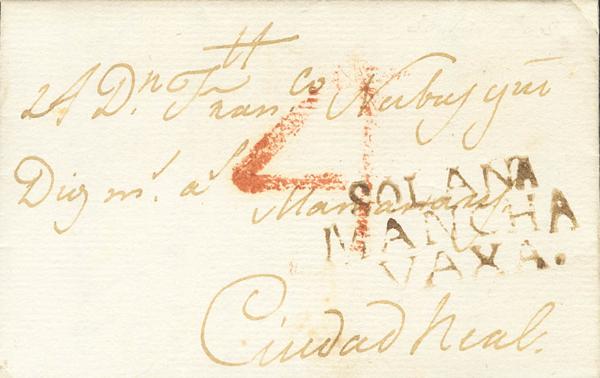 A Dn. Franco
4
Dios ms. as. Manzanares
SOLANA
MANCHA
VAXA.
Ciudad Real.